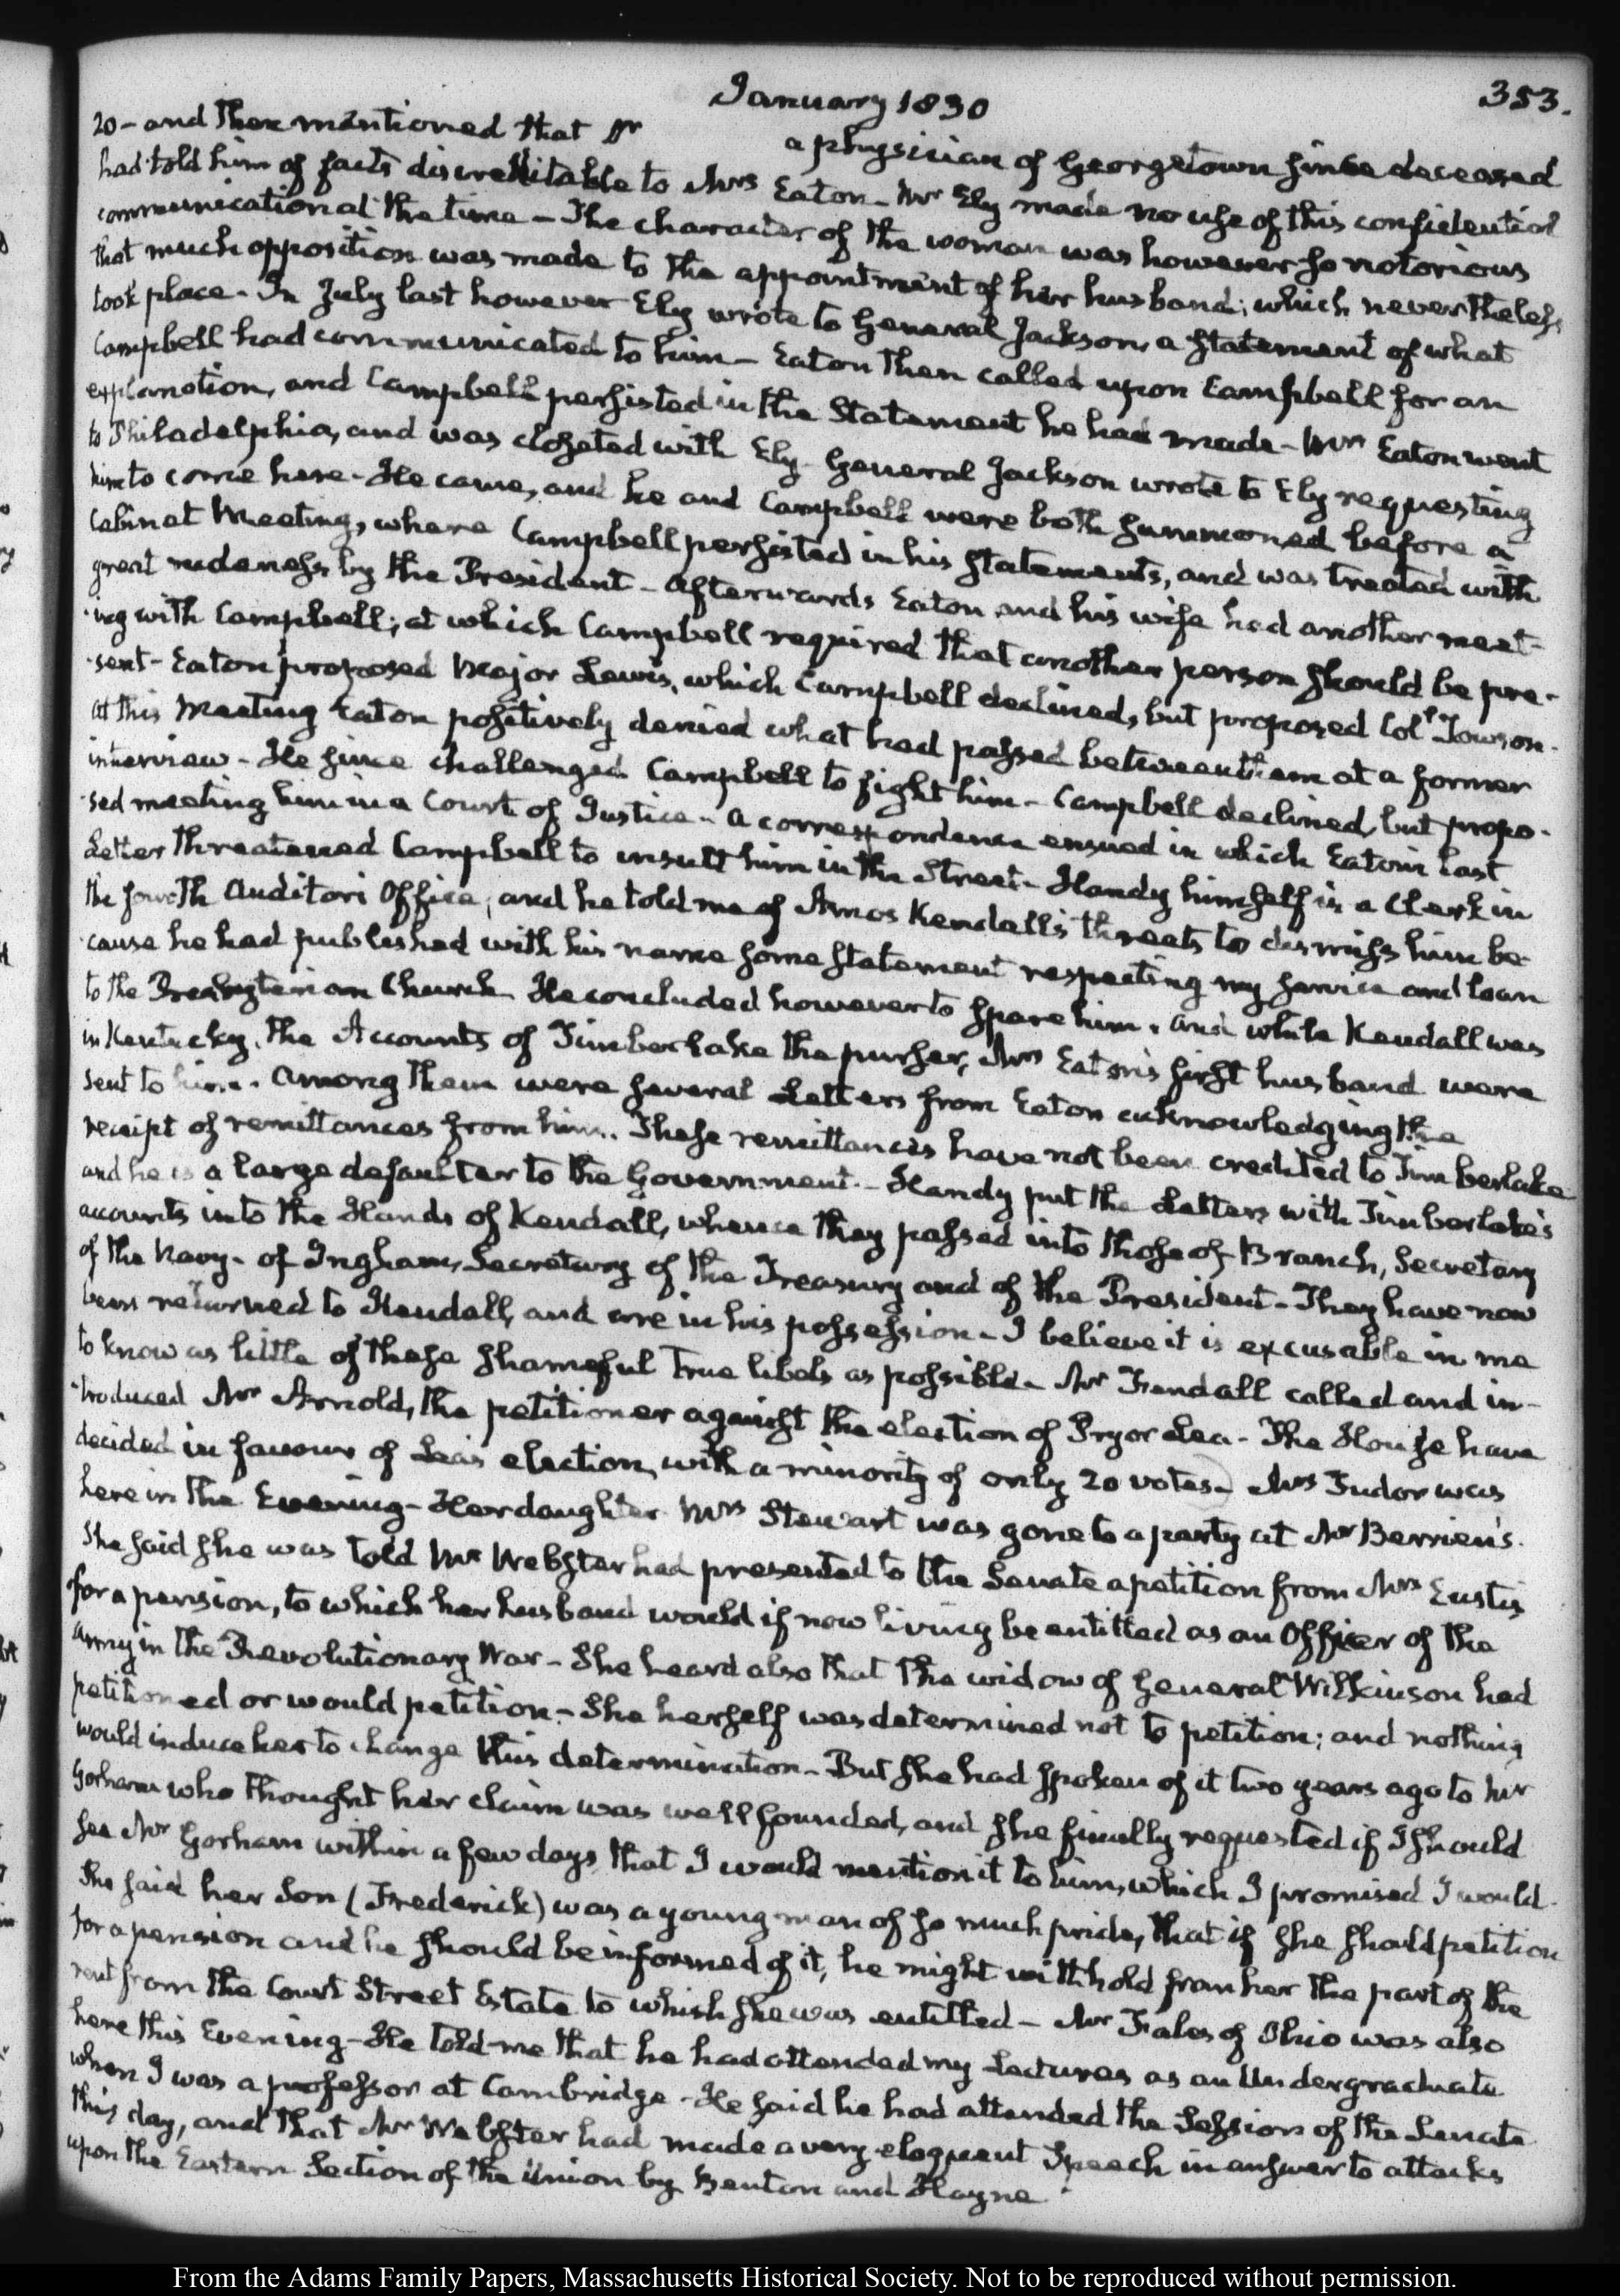 January 1830
353.
20 - and then mentioned that Dr a physician of Georgetown since deceased
had told him of facts discreditable to Mrs Eaton - Mr Ely made no use of this confidential
communication at the time - The character of the woman was however so notorious
that much opposition was made to the appointment of her husband; which nevertheless
took place - In July last however Ely wrote to General Jackson, a statement of what
Campbell had communicated to him - Eaton then called upon Campbell for an
explanation, and Campbell persisted in the Statement he had made - Mrs Eaton went
to Philadelphia, and was closeted with Ely - General Jackson wrote to Ely requesting
him to come here - He came, and he and Campbell were both summoned before a
Cabinet Meeting, where Campbell persisted in his statements, and was treated with
great rudeness by the President - Afterwards Eaton and his wife had another meet-
-ing with Campbell; at which Campbell required that another person should be pre-
-sent - Eaton proposed Major Lewis, which Campbell declined, but proposed Coll Towson -
At this Meeting Eaton positively denied what had passed between them at a former
interview - He since challenged Campbell to fight him - Campbell declined, but propo-
-sed meeting him in a Court of Justice - A correspondence ensued in which Eaton's last
Letter threatened Campbell to insult him in the Street - Handy himself is a Clerk in
the fourth Auditor's Office; and he told me of Amos Kendall's threats to dismiss him be-
-cause he had published with his name some statement respecting my service and loan
to the Presbyterian Church - He concluded however to spare him. And while Kendall was
in Kentucky, the Accounts of Timberlake the purser, Mrs Eaton's first husband were
sent to him. Among them were several Letters from Eaton acknowledging the
receipt of remittances from him. These remittances have not been credited to Timberlake
and he is a large defaulter to the Government. - Handy put the Letters with Timberlake's
accounts into the Hands of Kendall, whence they passed into those of Branch, Secretary
of the Navy - of Ingham, Secretary of the Treasury and of the President - They have now
been returned to Kendall, and are in his possession - I believe it is excusable in me
to know as little of these shameful true libels as possible - Mr Fendall called and in-
-troduced Mr Arnold, the petitioner against the election of Pryor Lea - The House have
decided in favour of Lea's election, with a minority of only 20 votes - Mrs Tudor was
here in the Evening - Her daughter Mrs Stewart was gone to a party at Mr Berrien's.
She said she was told Mr Webster had presented to the Senate a petition from Mrs Eustis
for a pension, to which her husband would if now living be entitled as an Officer of the
army in the Revolutionary War - She heard also that the widow of General Wilkinson had
petitioned or would petition - She herself was determined not to petition; and nothing
would induce her to change this determination - But she had spoken of it two years ago to Mr
Gorham who thought her claim was well founded, and she finally requested if I should
see Mr Gorham within a few days, that I would mention it to him, which I promised I would -
She said her Son (Frederick) was a young man of so much pride, that if she should petition
for a pension and he should be informed of it, he might withhold from her the part of the
rent from the Court Street Estate to which she was entitled - Mr Fales of Ohio was also
here this Evening - He told me that he had attended my Lectures as an Undergraduate
when I was a professor at Cambridge - He said he had attended the Session of the Senate
this day, and that Mr Webster had made a very eloquent Speech in answer to attacks
upon the Eastern Section of the Union by Benton and Hayne.
From the Adams Family Papers, Massachusetts Historical Society. Not to be reproduced without permission.